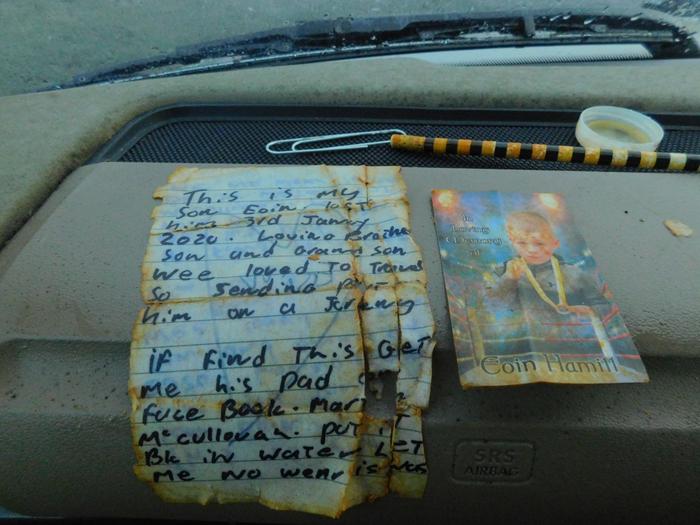 This is my
son Eoin. lost
him 3rd Janury
2020. Loving Brothe
son and Grandson
Wee loved To Travel
So Sending Part
him on a Jureny
if Find This GeT
me his Dad
Face Book. Mar
McCullovah. PuT iT
Bk in water LeT
me no wear is was
In
Loving
Memory
of
Eoin Hamill
SRS
AIRBAG